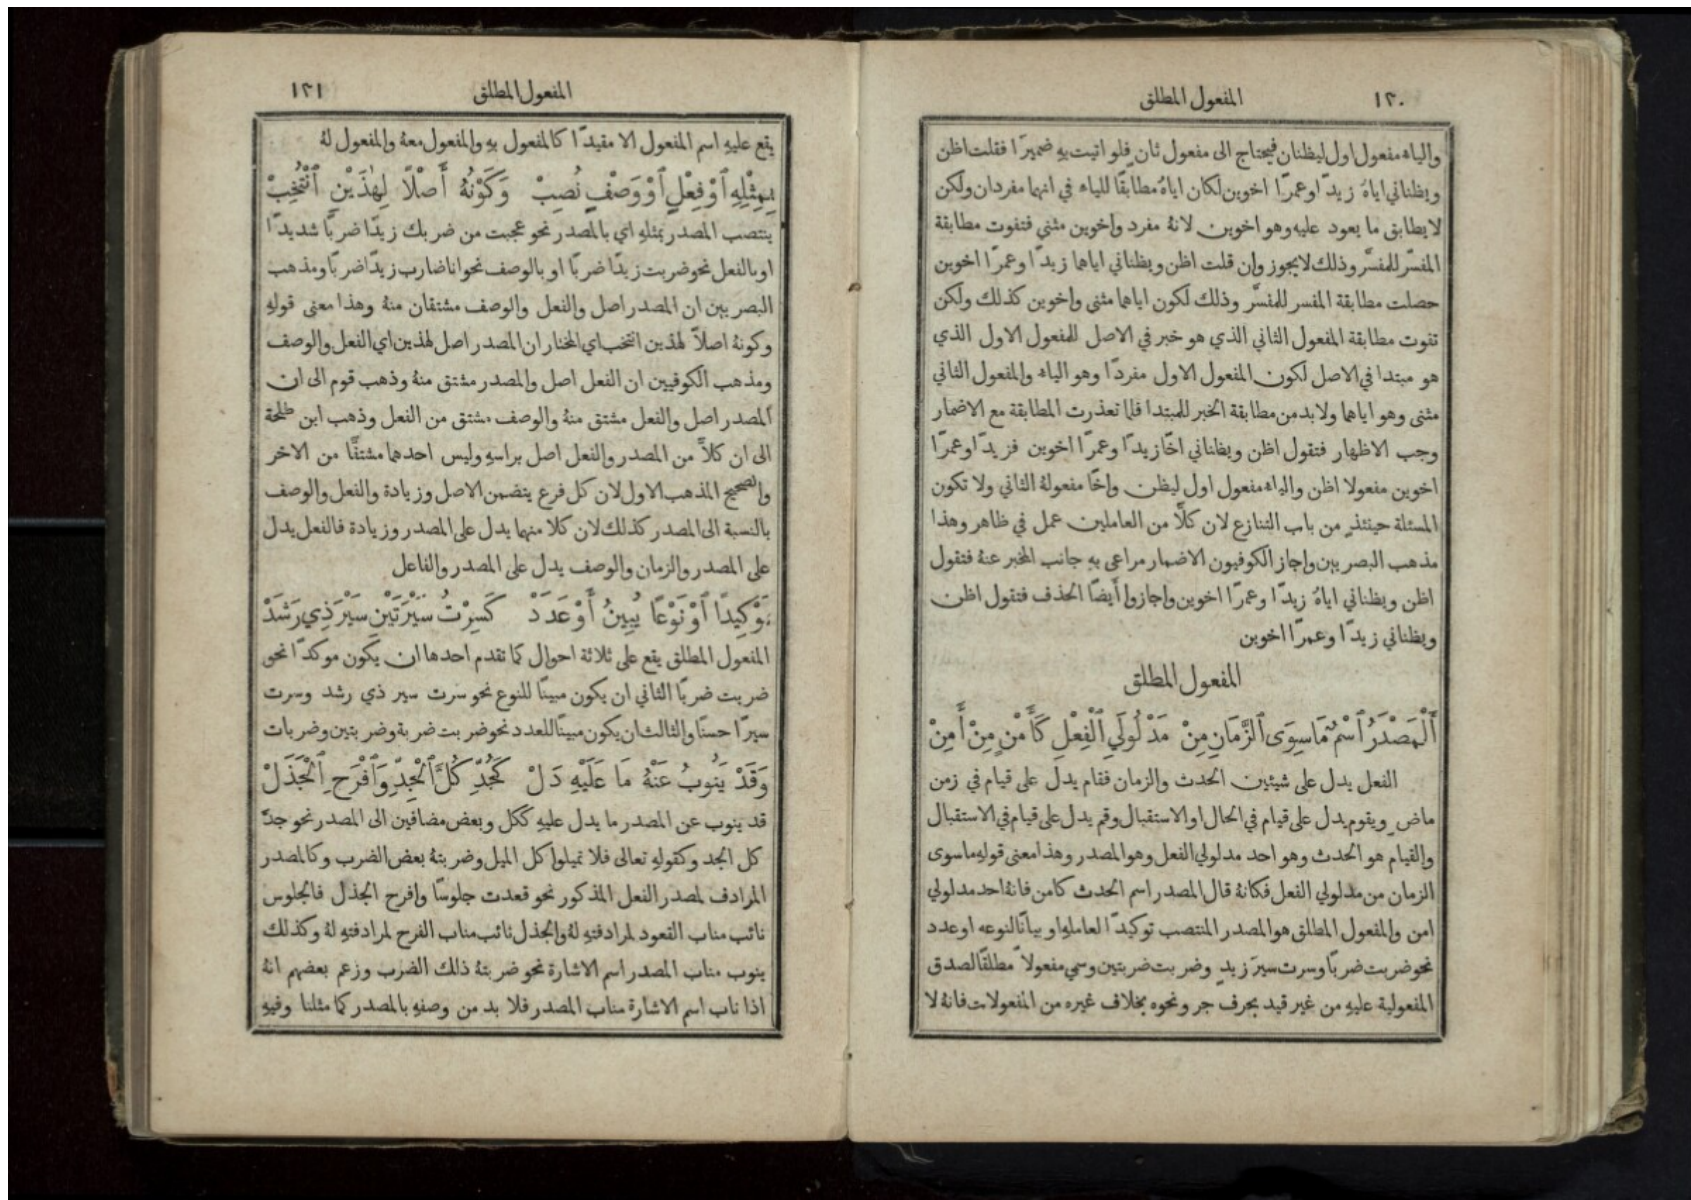 المفعول المطلق ١٢٠
والياء مفعول اول ليظنان فيحتاج الى مفعول ثان فلو اتيت به ضميرًا فقلت اظن
ويظناني اياهُ زيدًا وعمرًا اخوين لكان اياهُ مطابقًا للياء في انهما مفردان ولكن
لا يطابق ما يعود عليه وهو اخوين لانهُ مفرد واخوين مثنى فتفوت مطابقة
المفسِّر للمفسَّر وذلك لا يجوز وان قلت اظن ويظناني اياهما زيدًا وعمرًا اخوين
حصلت مطابقة المفسر للمفسَّر وذلك لكون اياهما مثنى واخوين كذلك ولكن
تفوت مطابقة المفعول الثاني الذي هو خبر في الاصل للمفعول الاول الذي
هو مبتدا في الاصل لكون المفعول الاول مفردًا وهو الياء والمفعول الثاني
مثنى وهو اياهما ولا بد من مطابقة الخبر للمبتدا فلما تعذرت المطابقة مع الاضمار
وجب الاظهار فتقول اظن ويظناني اخًا زيدًا وعمرًا اخوين فزيدًا وعمرًا
اخوين مفعولا اظن والياء مفعول اول ليظن واخًا مفعولهُ الثاني ولا تكون
المسئلة حينئذٍ من باب التنازع لان كلًّا من العاملين عمل في ظاهر وهذا
مذهب البصريين واجاز الكوفيون الاضمار مراعى به جانب المخبر عنهُ فتقول
اظن ويظناني اياهُ زيدًا وعمرًا اخوين واجازوا أيضًا الحذف فتقول اظن
ويظناني زيدًا وعمرًا اخوين
المفعول المطلق
أَلْمَصْدَرُ ٱسْمُ مَا سِوَى ٱلزَّمَانِ مِنْ مَدْلُولَيِ ٱلْفِعْلِ كَأَمْنٍ مِنْ أَمِنْ
الفعل يدل على شيئين الحدث والزمان فقام يدل على قيام في زمن
ماضٍ ويقوم يدل على قيام في الحال او الاستقبال وقم يدل على قيام في الاستقبال
والقيام هو الحدث وهو احد مدلولي الفعل وهو المصدر وهذا معنى قوله ما سوى
الزمان من مدلولي الفعل فكانهُ قال المصدر اسم الحدث كامن فانهُ احد مدلولي
امن والمفعول المطلق هو المصدر المنتصب توكيدًا لعامله او بيانًا لنوعه او عدد
نحو ضربت ضربًا وسرت سيرَ زيدٍ وضربت ضربتين وسمي مفعولاً مطلقًا لصدق
المفعولية عليه من غير قيد بحرف جر ونحوه بخلاف غيره من المفعولات فانهُ لا
المفعول المطلق ١٢١
يقع عليهِ اسم المفعول الا مقيدًا كالمفعول بهِ والمفعول معهُ والمفعول لهُ
بِمِثْلِهِ أَوْ فِعْلٍ ٱوْ وَصْفٍ نُصِبْ وَكَوْنُهُ أَصْلًا لِهٰذَيْنِ ٱنْتُخِبْ
ينتصب المصدر بمثلهِ اي بالمصدر نحو عجبت من ضربك زيدًا ضربًا شديدًا
او بالفعل نحو ضربت زيدًا ضربًا او بالوصف نحو انا ضارب زيدًا ضربًا ومذهب
البصريين ان المصدر اصل والفعل والوصف مشتقان منهُ وهذا معنى قولهِ
وكونهُ اصلاً لهذين انتخب اي المختار ان المصدر اصل لهذين اي الفعل والوصف
ومذهب الكوفيين ان الفعل اصل والمصدر مشتق منهُ وذهب قوم الى ان
المصدر اصل والفعل مشتق منهُ والوصف مشتق من الفعل وذهب ابن طلحة
الى ان كلاًّ من المصدر والفعل اصل براسهِ وليس احدهما مشتقًّا من الاخر
والصحيح المذهب الاول لان كل فرع يتضمن الاصل وزيادة والفعل والوصف
بالنسبة الى المصدر كذلك لان كلا منهما يدل على المصدر وزيادة فالفعل يدل
على المصدر والزمان والوصف يدل على المصدر والفاعل
تَوْكِيدًا ٱوْ نَوْعًا يُبِينُ أَوْ عَدَدْ كَسِرْتُ سَيْرَتَيْنِ سَيْرَ ذِي رَشَدْ
المفعول المطلق يقع على ثلاثة احوال كما تقدم احدها ان يكون موكدًا نحو
ضربت ضربًا الثاني ان يكون مبينًا للنوع نحو سرت سير ذي رشد وسرت
سيرًا حسنًا والثالث ان يكون مبينًا للعدد نحو ضربت ضربة وضربتين وضربات
وَقَدْ يَنُوبُ عَنْهُ مَا عَلَيْهِ دَلْ كَجُدَّ كُلَّ ٱلْجِدِّ وَٱفْرَحِ ٱلْجَذَلْ
قد ينوب عن المصدر ما يدل عليهِ ككل وبعض مضافين الى المصدر نحو جدَّ
كل الجد وكقولهِ تعالى فلا تميلوا كل الميل وضربتهُ بعض الضرب وكالمصدر
المرادف لمصدر الفعل المذكور نحو قعدت جلوسًا وافرح الجذل فالجلوس
نائب مناب القعود لمرادفتهِ لهُ والجذل نائب مناب الفرح لمرادفتهِ لهُ وكذلك
ينوب مناب المصدر اسم الاشارة نحو ضربتهُ ذلك الضرب وزعم بعضهم انهُ
اذا ناب اسم الاشارة مناب المصدر فلا بد من وصفهِ بالمصدر كما مثلنا وفيهِ